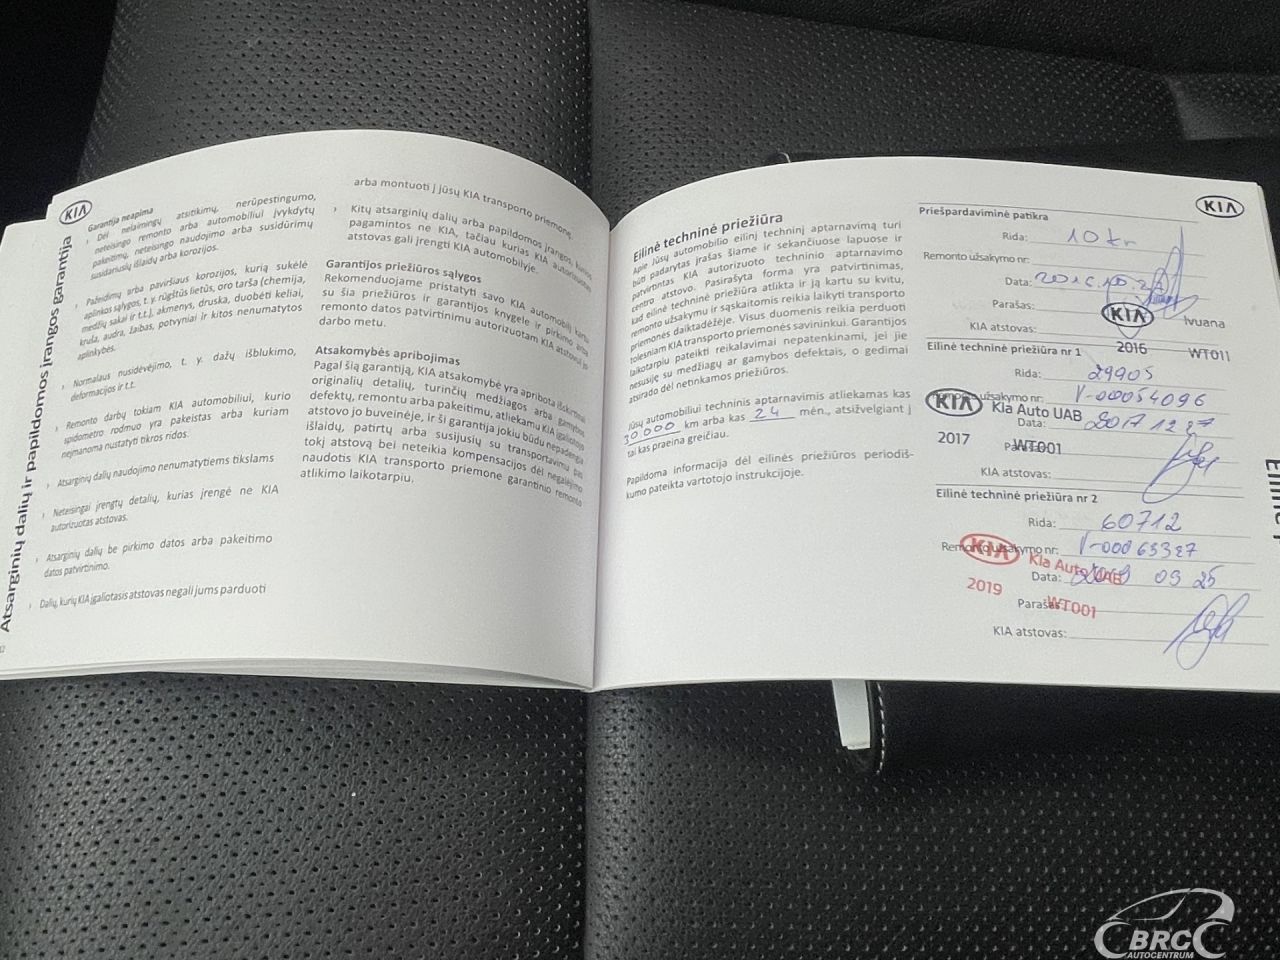 Atsarginių dalių ir papildomos įrangos garantija
KIA
Garantija neapima
› Dėl nelaimingų atsitikimų, nerūpestingumo,
neteisingo remonto arba automobiliui įvykdytų
pakeitimų, neteisingo naudojimo arba susidūrimų
susidariusių išlaidų arba korozijos.
› Pažeidimų arba paviršiaus korozijos, kurią sukėlė
aplinkos sąlygos, t. y. rūgštūs lietūs, oro tarša (chemija,
medžių sakai ir t.t.), akmenys, druska, duobėti keliai,
kruša, audra, žaibas, potvyniai ir kitos nenumatytos
aplinkybės.
› Normalaus nusidėvėjimo, t. y. dažų išblukimo,
deformacijos ir t.t.
› Remonto darbų tokiam KIA automobiliui, kurio
spidometro rodmuo yra pakeistas arba kuriam
neįmanoma nustatyti tikros ridos.
› Atsarginių dalių naudojimo nenumatytiems tikslams
› Neteisingai įrengtų detalių, kurias įrengė ne KIA
autorizuotas atstovas.
› Atsarginių dalių be pirkimo datos arba pakeitimo
datos patvirtinimo.
› Dalių, kurių KIA įgaliotasis atstovas negali jums parduoti
arba montuoti į jūsų KIA transporto priemonę.
› Kitų atsarginių dalių arba papildomos įrangos, kurios
pagamintos ne KIA, tačiau kurias KIA autorizuotas
atstovas gali įrengti KIA automobilyje.
Garantijos priežiūros sąlygos
Rekomenduojame pristatyti savo KIA automobilį kartu
su šia priežiūros ir garantijos knygele ir pirkimo arba
remonto datos patvirtinimu autorizuotam KIA atstovui jo
darbo metu.
Atsakomybės apribojimas
Pagal šią garantiją, KIA atsakomybė yra apribota išskirtinai
originalių detalių, turinčių medžiagos arba gamybos
defektų, remontu arba pakeitimu, atliekamu KIA įgaliotojo
atstovo jo buveinėje, ir ši garantija jokiu būdu nepadengia
išlaidų, patirtų arba susijusių su transportavimu pas
tokį atstovą bei neteikia kompensacijos dėl negalėjimo
naudotis KIA transporto priemone garantinio remonto
atlikimo laikotarpiu.
Eilinė techninė priežiūra
Apie Jūsų automobilio eilinį techninį aptarnavimą turi
būti padarytas įrašas šiame ir sekančiuose lapuose ir
patvirtintas KIA autorizuoto techninio aptarnavimo
centro atstovo. Pasirašyta forma yra patvirtinimas,
kad eilinė techninė priežiūra atlikta ir ją kartu su kvitu,
remonto užsakymu ir sąskaitomis reikia laikyti transporto
priemonės daiktadėžėje. Visus duomenis reikia perduoti
tolesniam KIA transporto priemonės savininkui. Garantijos
laikotarpiu pateikti reikalavimai nepatenkinami, jei jie
nesusiję su medžiagų ar gamybos defektais, o gedimai
atsirado dėl netinkamos priežiūros.
Jūsų automobiliui techninis aptarnavimis atliekamas kas
30.000 km arba kas 24 mėn., atsižvelgiant į
tai kas praeina greičiau.
Papildoma informacija dėl eilinės priežiūros periodiš-
kumo pateikta vartotojo instrukcijoje.
KIA
Priešpardaviminė patikra
Rida: 10 km
Remonto užsakymo nr:
Data:
Parašas:
KIA
Ivuana
KIA atstovas:
2016
WT011
Eilinė techninė priežiūra nr 1
Rida: 29905
Remonto užsakymo nr: V-00054096
KIA
Kia Auto UAB
Data: 2017 12 27
2017
Parašas:
WT001
KIA atstovas:
Eilinė techninė priežiūra nr 2
Rida: 60712
Remonto užsakymo nr: V-00063327
KIA
Kia Auto UAB
Data: 2019 09 25
2019
Parašas:
WT001
KIA atstovas:
BRC
AUTOCENTRUM